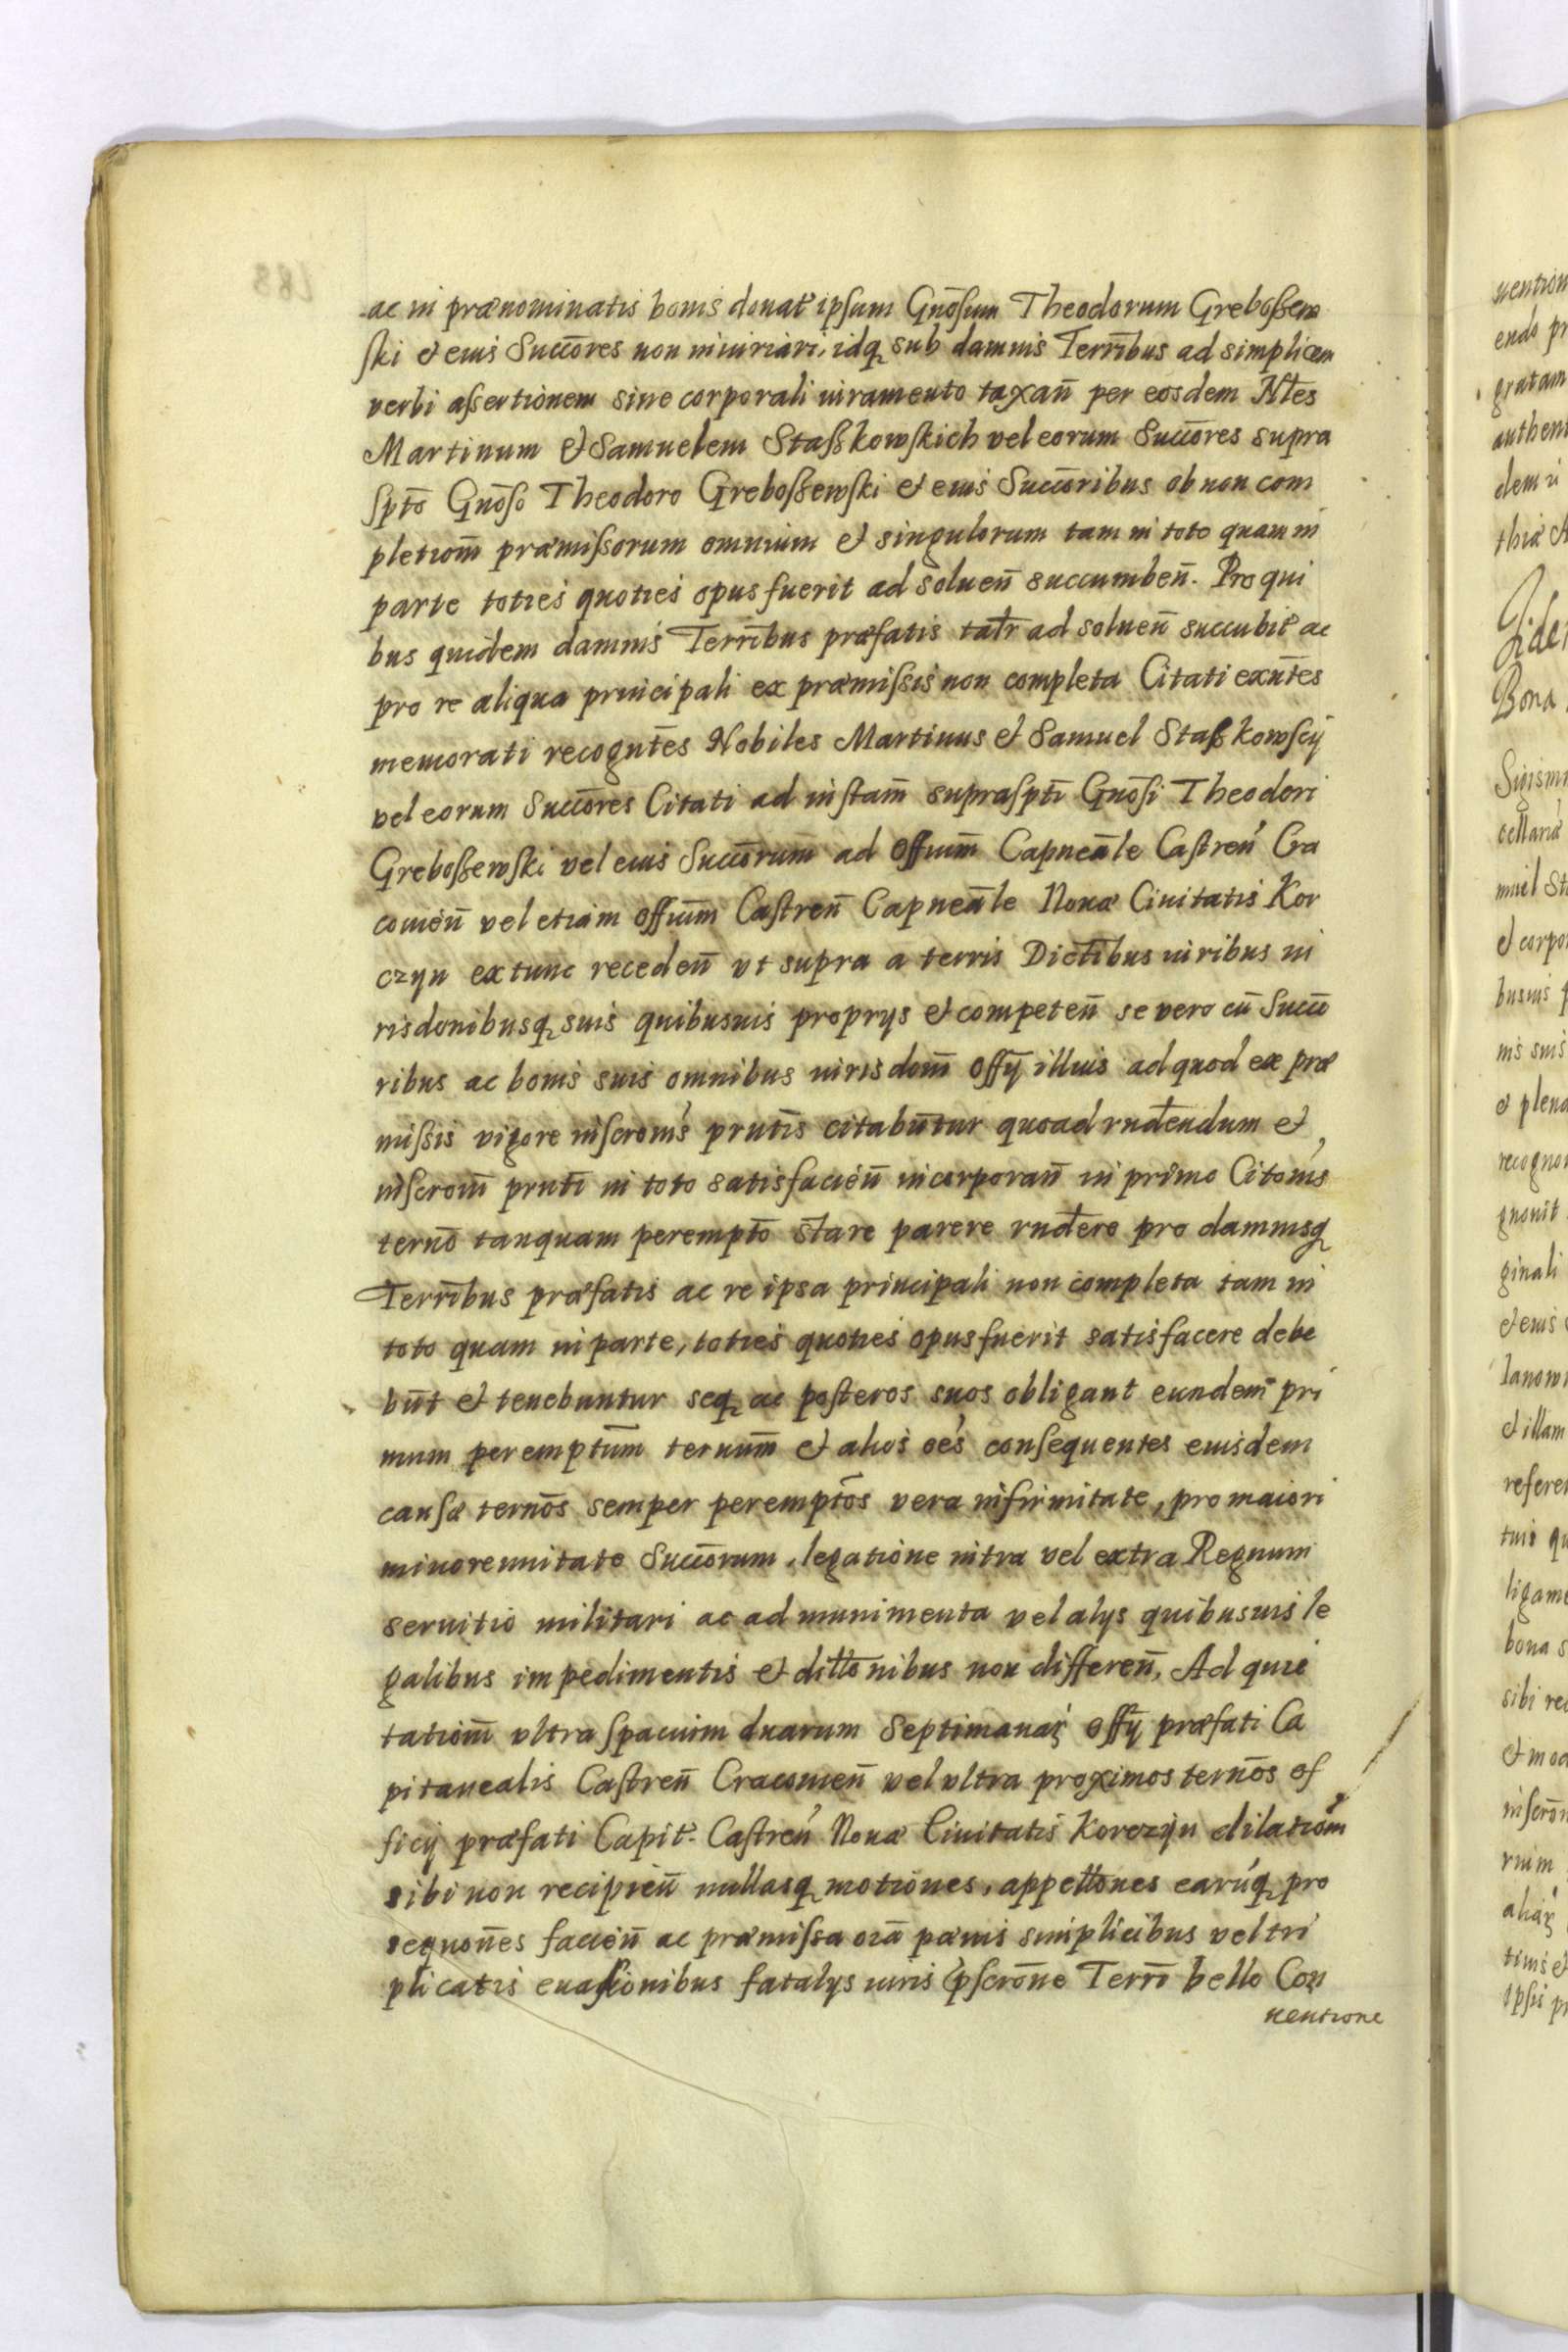 ac in prænominatis bonis donat̃ ipſum Gnõſum Theodorum Greboſzew
ſki et eius Succõres non iniuriari, idq, sub damnis Terrĩbus ad simplicem
verbi aſsertionem sine corporali iuramento taxañ per eosdem Nb̃les
Martinum et Samuelem Staſzkowſkich vel eorum Succõres supra
ſptõ Gnõſo Theodoro Greboſzewſki et eius Succõribus ob non com
pletiom̃ præmiſsorum omnium et singulorum tam in toto quam in
parte toties quoties opus fuerit ad solueñ succumbeñ. Pro qui
bus quidem damnis Terrĩbus præfatis talr̃ ad solueñ succubit̃ ac
pro re aliqua principali ex præmiſsis non completa Citati exñtes
memorati recogñtes Nobiles Martinus et Samuel Staſzkowſcij
vel eorum Succõres Citati ad inſtam̃ supraſptĩ Gnõſi Theodori
Greboſzewſki vel eius Succõrum ad Offium̃ Capneãle Caſtreñ Cra
covieñ vel etiam offium̃ Caſtreñ Capneãle Nouæ Ciuitatis Kor
czyn ex tunc recedeñ vt supra a terris Dictĩbus iuribus iu
risdonibusq, suis quibusuis proprys et competeñ se vero cũ Succõ
ribus ac bonis suis omnibus iurisdom̃ offy̆ illius ad quod ex præ
miſsis vigore inſcronis prntĩs citabũtur quoad rnd̃endum et
inſcrom̃ prntĩ in toto satisfacieñ incorporañ in primo Citonis
ternõ tanquam peremptõ stãre parere rnd̃ere pro damnisq,
Terrĩbus præfatis ac re ipsa principali non completa tam in
toto quam in parte, toties quoties opus fuerit satisfacere debe
bũt et tenebuntur seq, ac poſteros suos obligant eundem pri
mum peremptũm ternum̃ et alios oẽs conſequentes eiusdem
cauſæ ternõs semper peremptõs vera infirmitate, pro maiori
minorennitate Succõrum, legatione intra vel extra Regnum
seruitio militari ac ad munimenta vel alys quibusuis le
galibus impedimentis et dillonibus non differeñ, Ad quie
tatiom̃ vltra ſpacium duarum Septimanaꝝ offy̆ præfati Ca
pitanealis Caſtreñ Cracouieñ vel vltra proximos ternõs of
ficij præfati Capit̃. Caſtreñ Nouæ Ciuitatis Korczyn dilatiom̃
sibi non recipieñ nullasq, motiones, appellones earũq, pro
sequoñes facieñ ac præmiſsa oĩa pænis simplicibus vel tri
plicatis euaſionibus fatalys iuris p̃ſcrõne Terrĩ bello Con
uentione